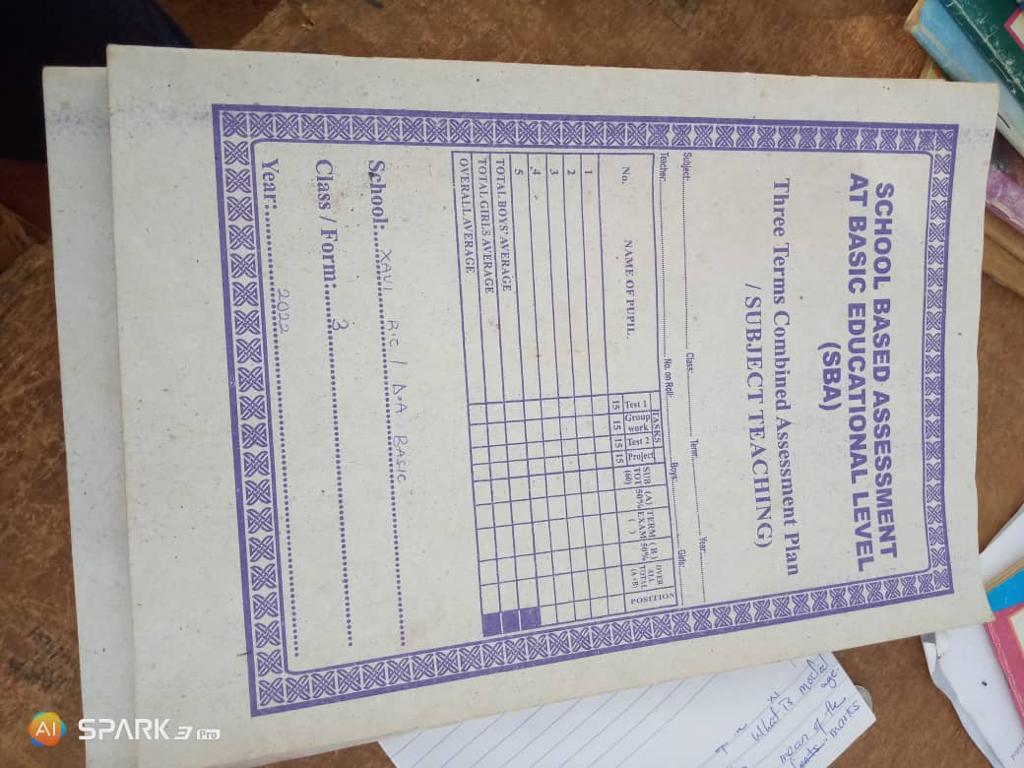 SCHOOL BASED ASSESSMENT
AT BASIC EDUCATIONAL LEVEL
(SBA)
Three Terms Combined Assessment Plan
/ SUBJECT TEACHING)
Subject: Class: Term: Year:
Teacher: No. on Roll: Boys: Girls:
No. NAME OF PUPIL. TASKS SUB TOT (60) (A) 50% TERM EXAM ( ) (B) 50% OVER ALL TOTAL (A+B) POSITION
Test 1 Group work Test 2 Project
15 15 15 15
1
2
3
4
5
TOTAL BOYS' AVERAGE
TOTAL GIRLS AVERAGE
OVERALL AVERAGE
School: XAVI R.C / D.A BASIC
Class / Form: 3
Year: 2022
What is modal age
mean of the
marks
AI SPARK 3 Pro